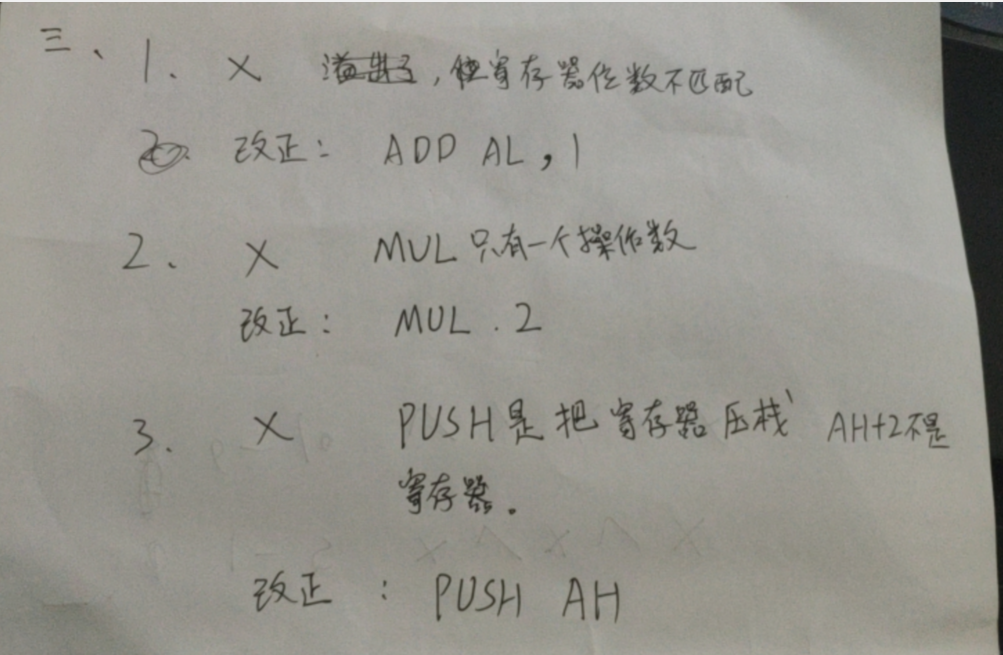 三、1. × ,寄存器位数不匹配
改正: ADD AL,1
2. × MUL只有一个操作数
改正: MUL . 2
3. × PUSH是把寄存器压栈 AH+2不是
寄存器。
改正: PUSH AH